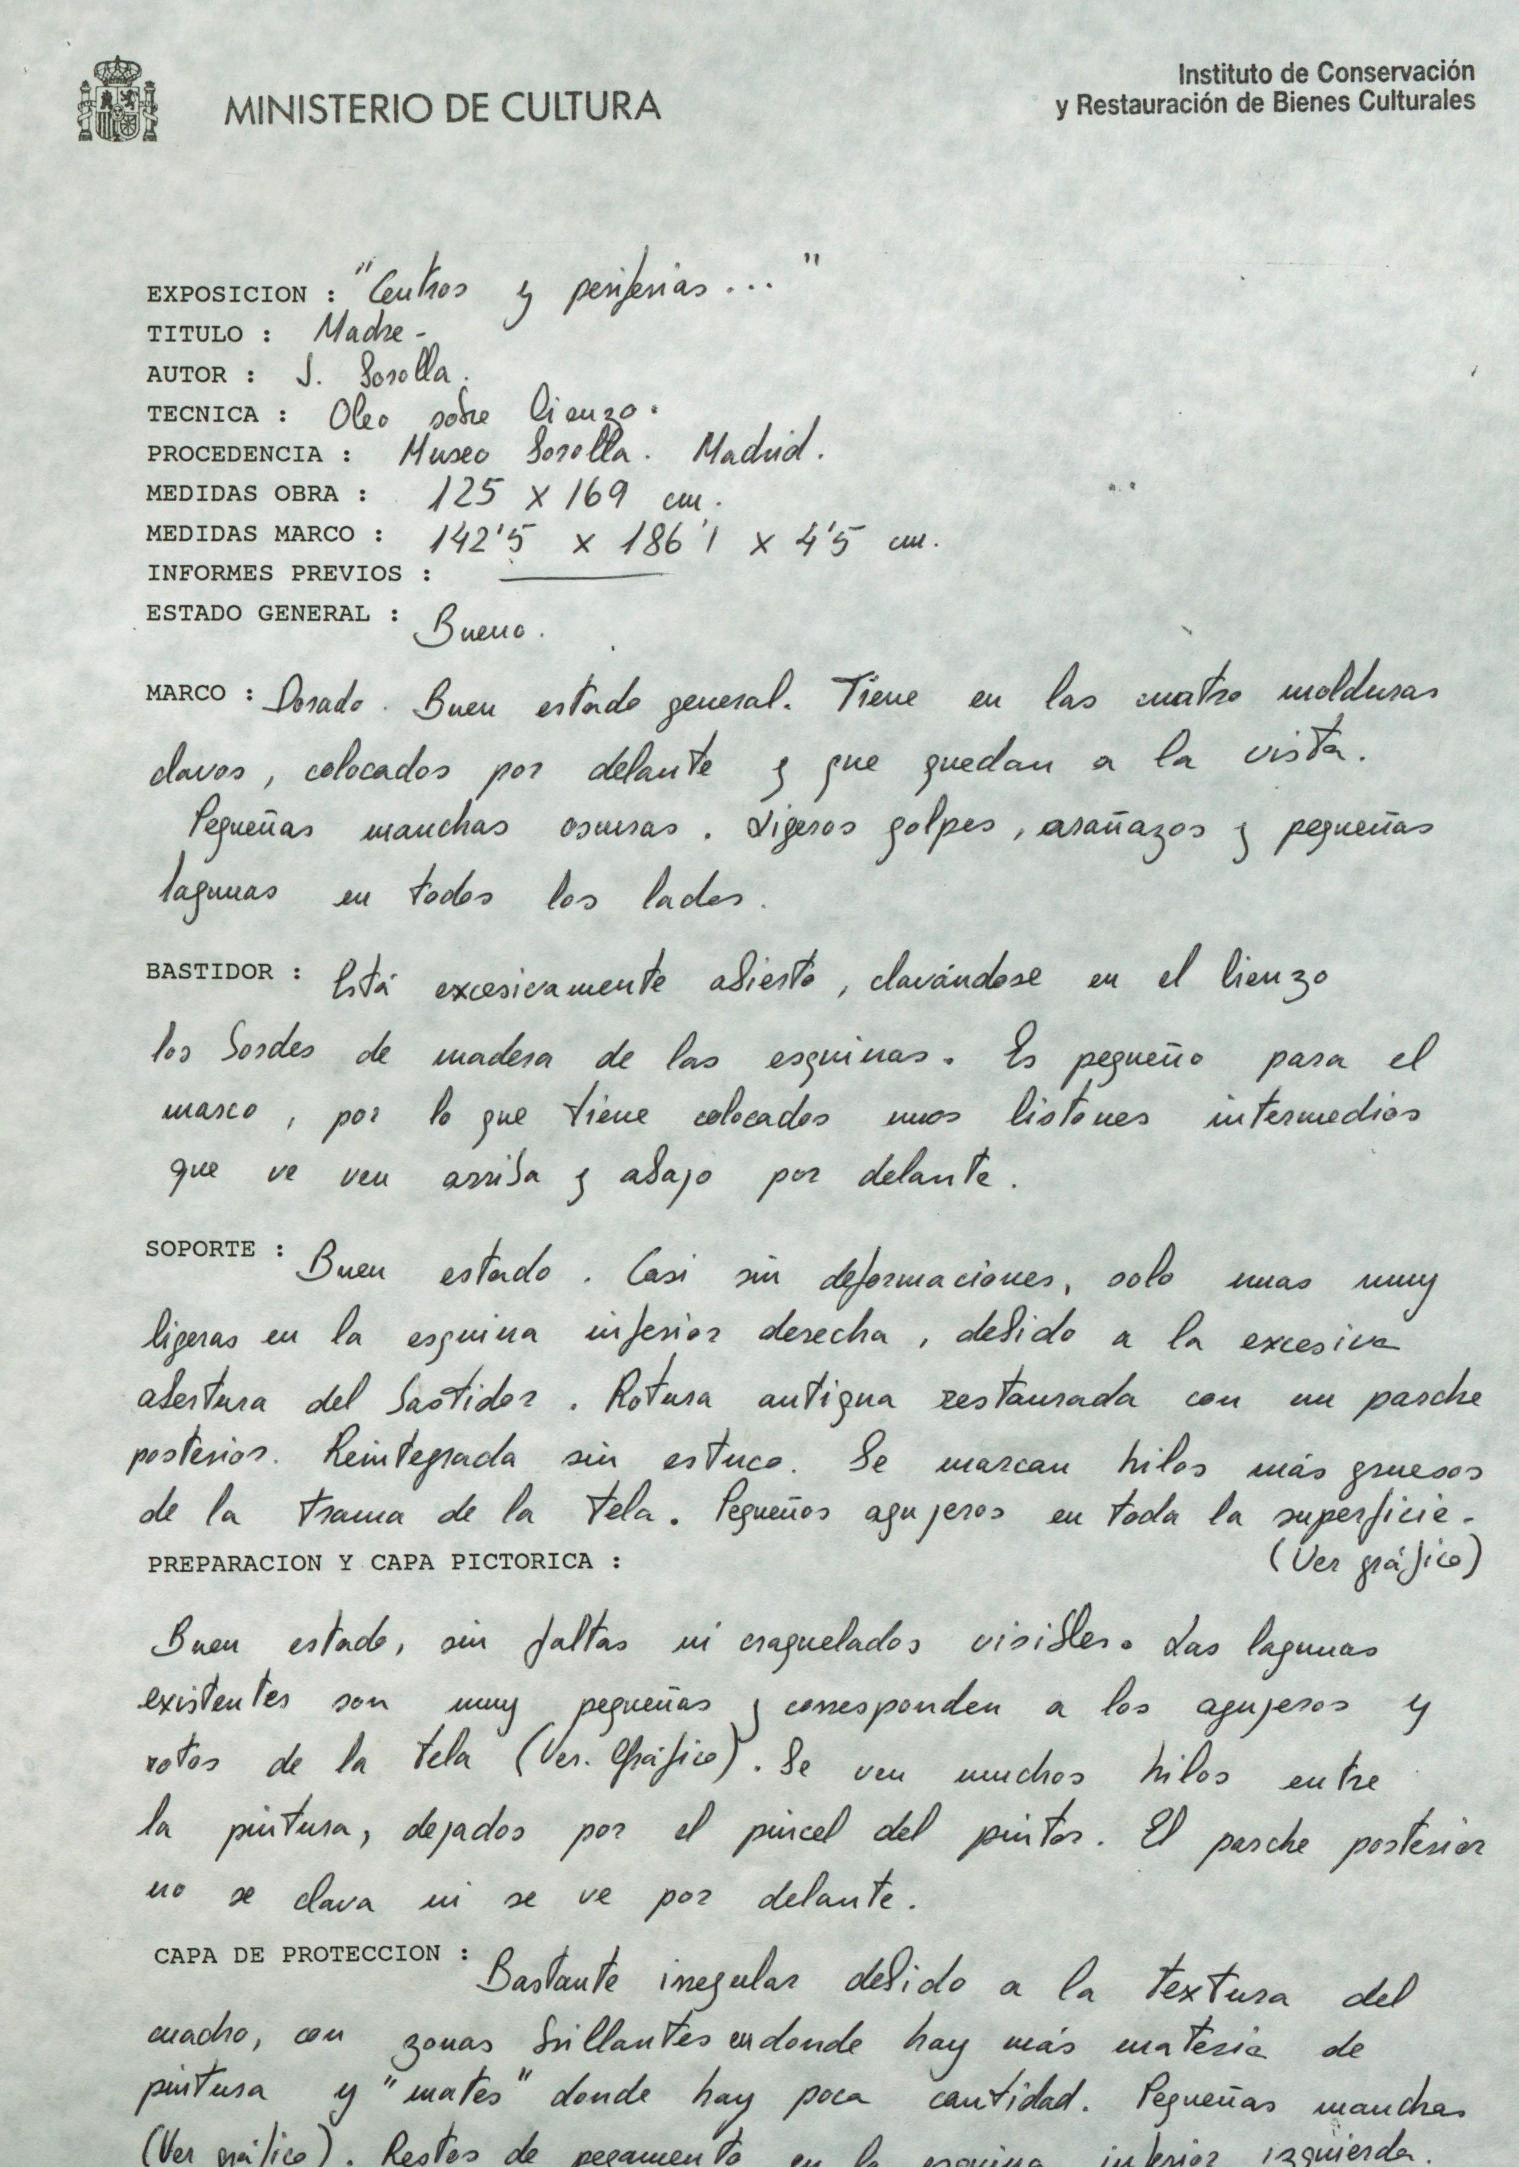 MINISTERIO DE CULTURA
Instituto de Conservación
y Restauración de Bienes Culturales
EXPOSICION : "Centros y periferias ..."
TITULO : Madre -
AUTOR : J. Sorolla.
TECNICA : Oleo sobre lienzo.
PROCEDENCIA : Museo Sorolla. Madrid.
MEDIDAS OBRA : 125 x 169 cm.
MEDIDAS MARCO : 142'5 x 186'1 x 4'5 cm.
INFORMES PREVIOS : ———
ESTADO GENERAL : Bueno.
MARCO : Dorado. Buen estado general. Tiene en las cuatro molduras
clavos, colocados por delante y que quedan a la vista.
Pequeñas manchas oscuras. Ligeros golpes, arañazos y pequeñas
lagunas en todos los lados.
BASTIDOR : Está excesivamente abierto, clavándose en el lienzo
los bordes de madera de las esquinas. Es pequeño para el
marco, por lo que tiene colocados unos listones intermedios
que ve ven arriba y abajo por delante.
SOPORTE : Buen estado. Casi sin deformaciones, solo unas muy
ligeras en la esquina inferior derecha, debido a la excesiva
abertura del bastidor. Rotura antigua restaurada con un parche
posterior. Reintegrada sin estuco. Se marcan hilos más gruesos
de la trama de la tela. Pequeños agujeros en toda la superficie.
(Ver gráfico)
PREPARACION Y CAPA PICTORICA :
Buen estado, sin faltas ni craquelados visibles. Las lagunas
existentes son muy pequeñas y corresponden a los agujeros y
rotos de la tela (Ver. Gráfico). Se ven muchos hilos entre
la pintura, dejados por el pincel del pintor. El parche posterior
no se clava ni se ve por delante.
CAPA DE PROTECCION : Bastante irregular debido a la textura del
cuadro, con zonas brillantes en donde hay más materia de
pintura y "mates" donde hay poca cantidad. Pequeñas manchas
(Ver gráfico). Restos de pegamento en la esquina inferior izquierda.